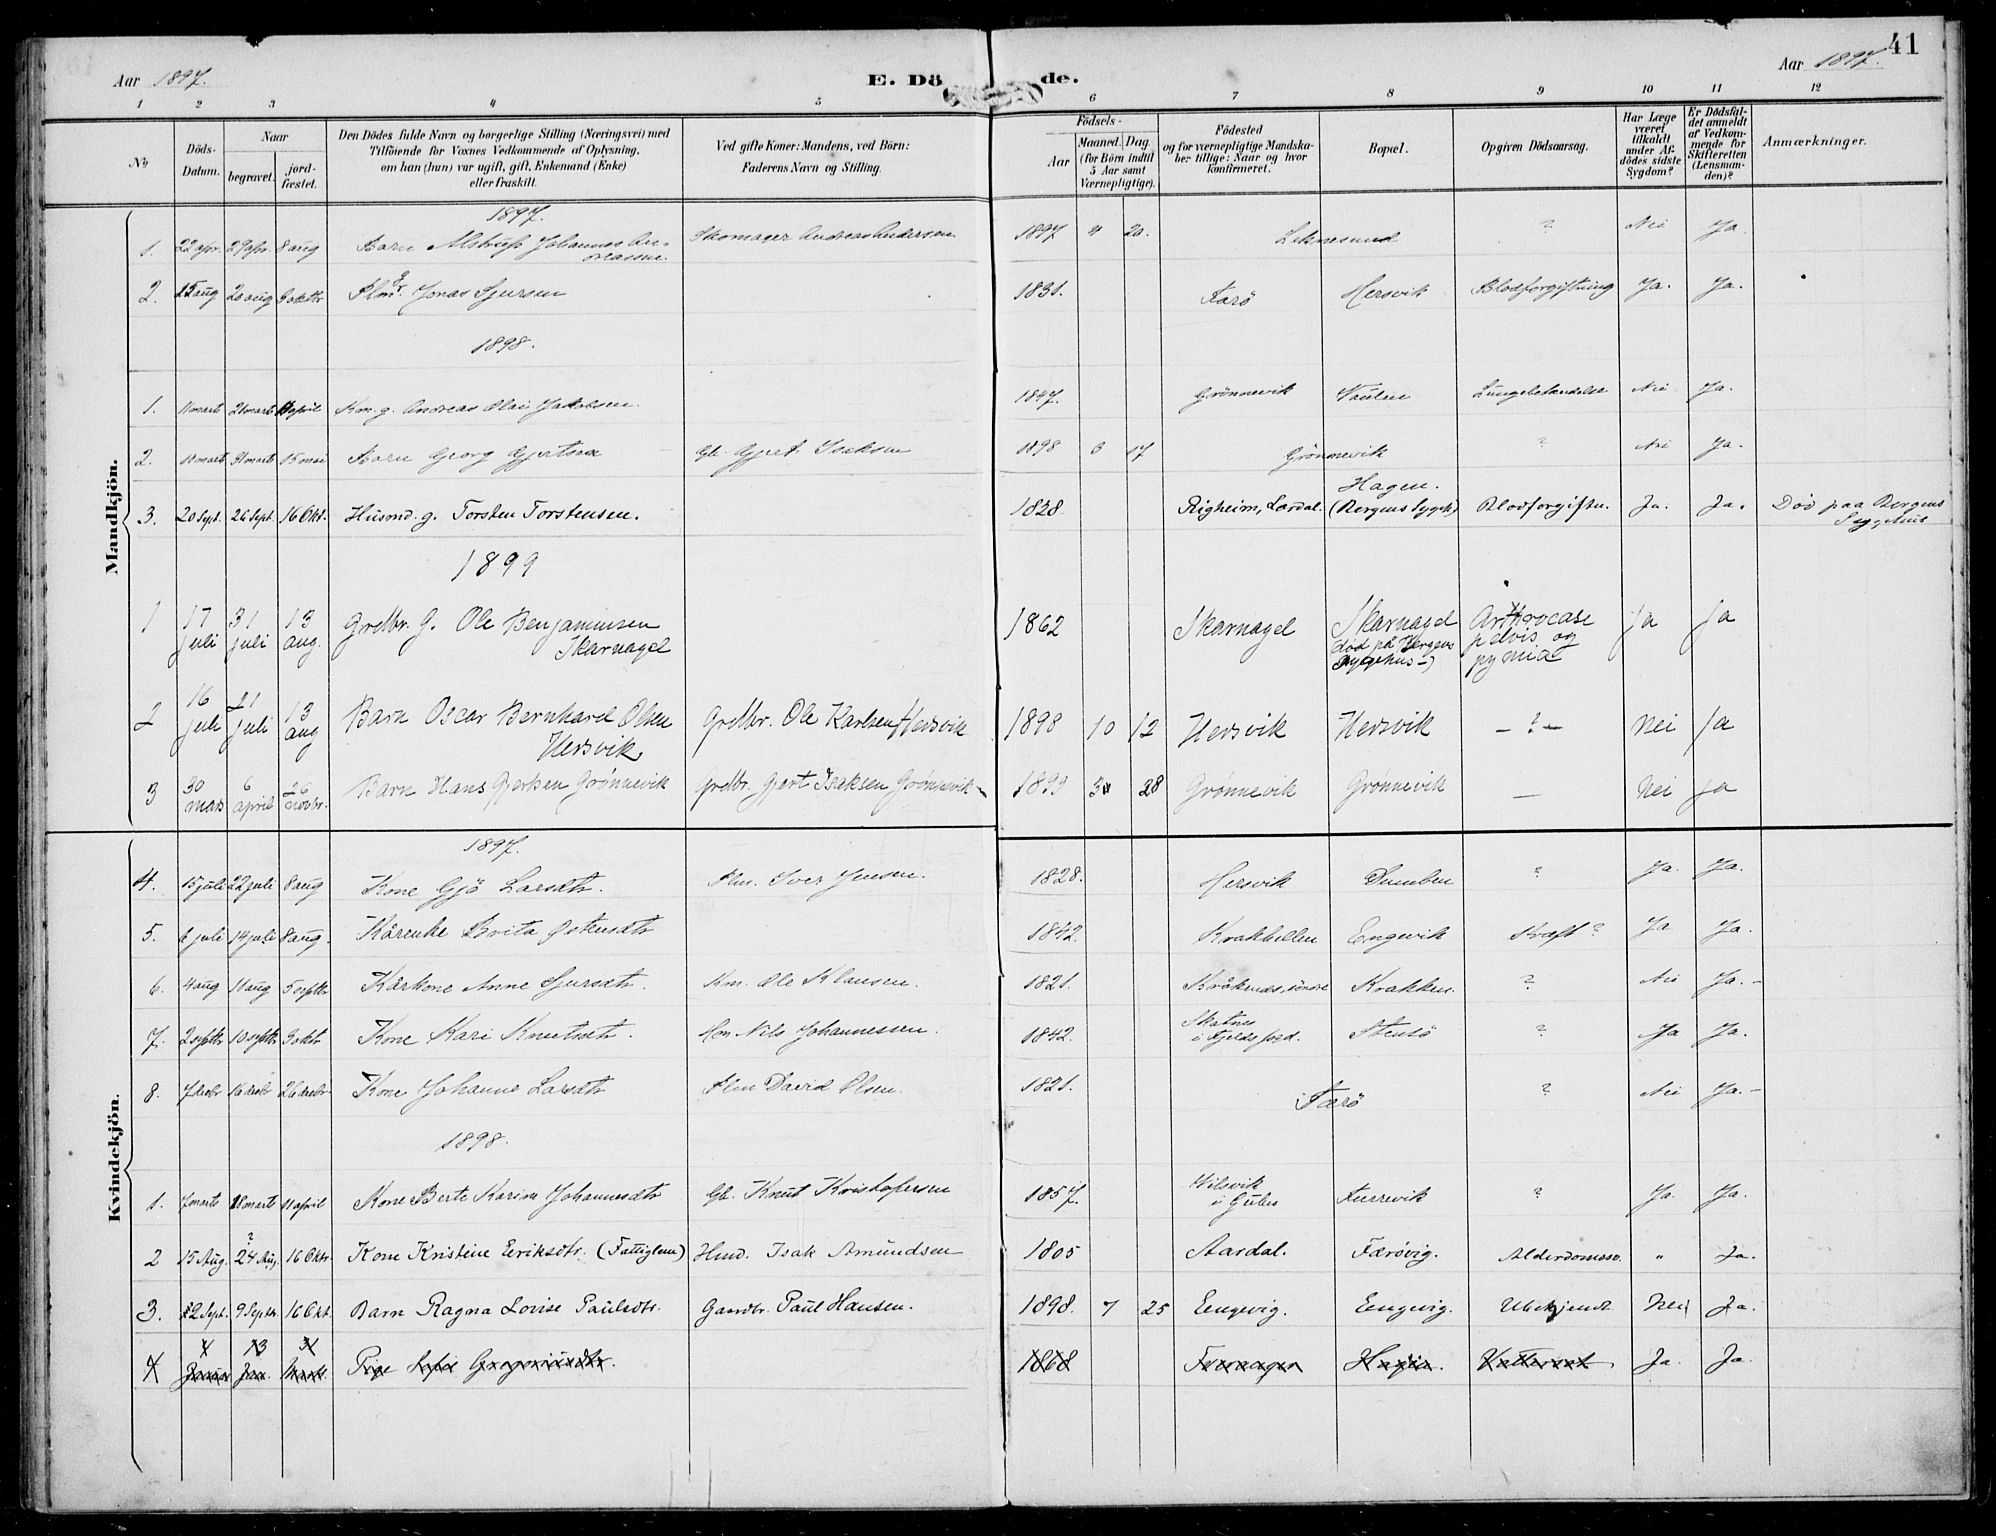 41
Aar 1897. E. Dö de. Aar 1897.
1 2 3 4 5 6 7 8 9 10 11 12
No
Döds-Datum.
Naar
begravet.
jord-fæstet.
Den Dödes fulde Navn og borgerlige Stilling (Næringsvei) med
Tilföiende for Voxnes Vedkommende af Oplysning,
om han (hun) var ugift, gift, Enkemand (Enke)
eller fraskilt.
Ved gifte Koner: Mandens, ved Börn:
Faderens Navn og Stilling.
Födsels-
Aar
Maaned. Dag
(for Börn indtil
5 Aar samt
Værnepligtige).
Födested
og for værnepligtige Mandska-
ber tillige: Naar og hvor
konfirmeret.
Bopæl.
Opgiven Dödsaarsag.
Har Læge
været
tilkaldt
under Af-
dödes sidste
Sygdom?
Er Dödsfal-
det anmeldt
af Vedkom-
mende for
Skifteretten
(Lensman-
den)?
Anmærkninger.
Mandkjön.
1897.
1. 22 apr. 29 apr. 8 aug Barn Johannes An- Skomager Andreas Andersen 1897 4 20. ? Nei Ja.
dreassen.
2. 15 aug 20 aug 3 oktbr Jonas Sjursen 1831. Færö Hersvik Blodforgiftning Ja. Ja.
1898.
1. 11 marts 21 marts 11 april Km. g. Andreas Olai Jakobsen. 1847. Grönnevik Lungebetændelse Nei Ja.
2. 31 marts 15 mai Barn Georg Gjertsen Gjert Isaksen 1898 3 17 Grönnevik ? Nei Ja.
3. 20 Sept. 26 Sept. 16 Okt. Husmd. g. Torsten Torstensen. 1828. Righeim, Lærdal. Hagen. (Bergens Sygeh) Blodforgiftn. Ja. Ja. Död paa Bergens
Sygehus
1899
1 17 juli 31 juli 13 aug. Grdbr. G. Ole Benjaminsen 1862 Skarnagel Skarnagel Arthrocase Ja Ja
Skarnagel död på Bergens pelvis og
Sygehus pymia
2 16 juli 21 juli 13 aug Barn Oscar Bernhard Olsen Grdbr. Ole Karlsen Hersvik 1898 10 12 Hersvik Hersvik -?- Nei Ja
Hersvik
3 30 6 april 26 novbr. Barn Hans Grønnevik Grdbr. Gjert Isaksen Grønnevik 1899 3 28 Grønnevik Grønnevik — Nei Ja
Kvindekjön.
1897.
4. 15 juli 22 juli 8 aug Kone Gjö Larsdtr. Iver Jensen. 1828. Hersvik ? Ja. Ja.
5. 6 juli 14 juli 8 aug. Kårenke Brita Østensdtr 1842. Krakhellen Engevik Kræft? Ja Ja.
6. 4 aug 11 aug 5 septbr Kårkone Anne Sjursdtr. Km. Ole Klausen. 1821. Krakken. ? Nei Ja.-
7. 2 septbr 10 septbr 3 oktbr Kone Kari Knutsdtr. Nils Johannessen. 1842. Skatnes Stensö ? Ja Ja.
8. 7 decbr 16 decbr 26 decbr Kone Johanne Larsdtr David Olsen. 1821. Færö ? Nei Ja.-
1898.
1. 7 marts 18 marts 11 april Kone Berte Karine Johannesdtr Knut Kristofersen 1857. ? Ja. Ja.
i Gulen
2 15 Aug. 24 Aug. ? 16 Oktr. Kone Kristine Eeriksdtr. (Fattiglem) Hmd. Isak Amundsen 1805 Aardal. Færövig. Alderdomssv. " Ja.
3. 2 Sept. 9 Septbr. 16 Okt. Barn Ragna Lovise Paulsdtr. Gaardbr. Paul Hansen. 1898. 7 25 Eengevig. Eengevig. Ubekjendt. Nei Ja.
4 Januar 13 Jan. Pige Sofie Gregoriusdtr. 1868 Ja. Ja.